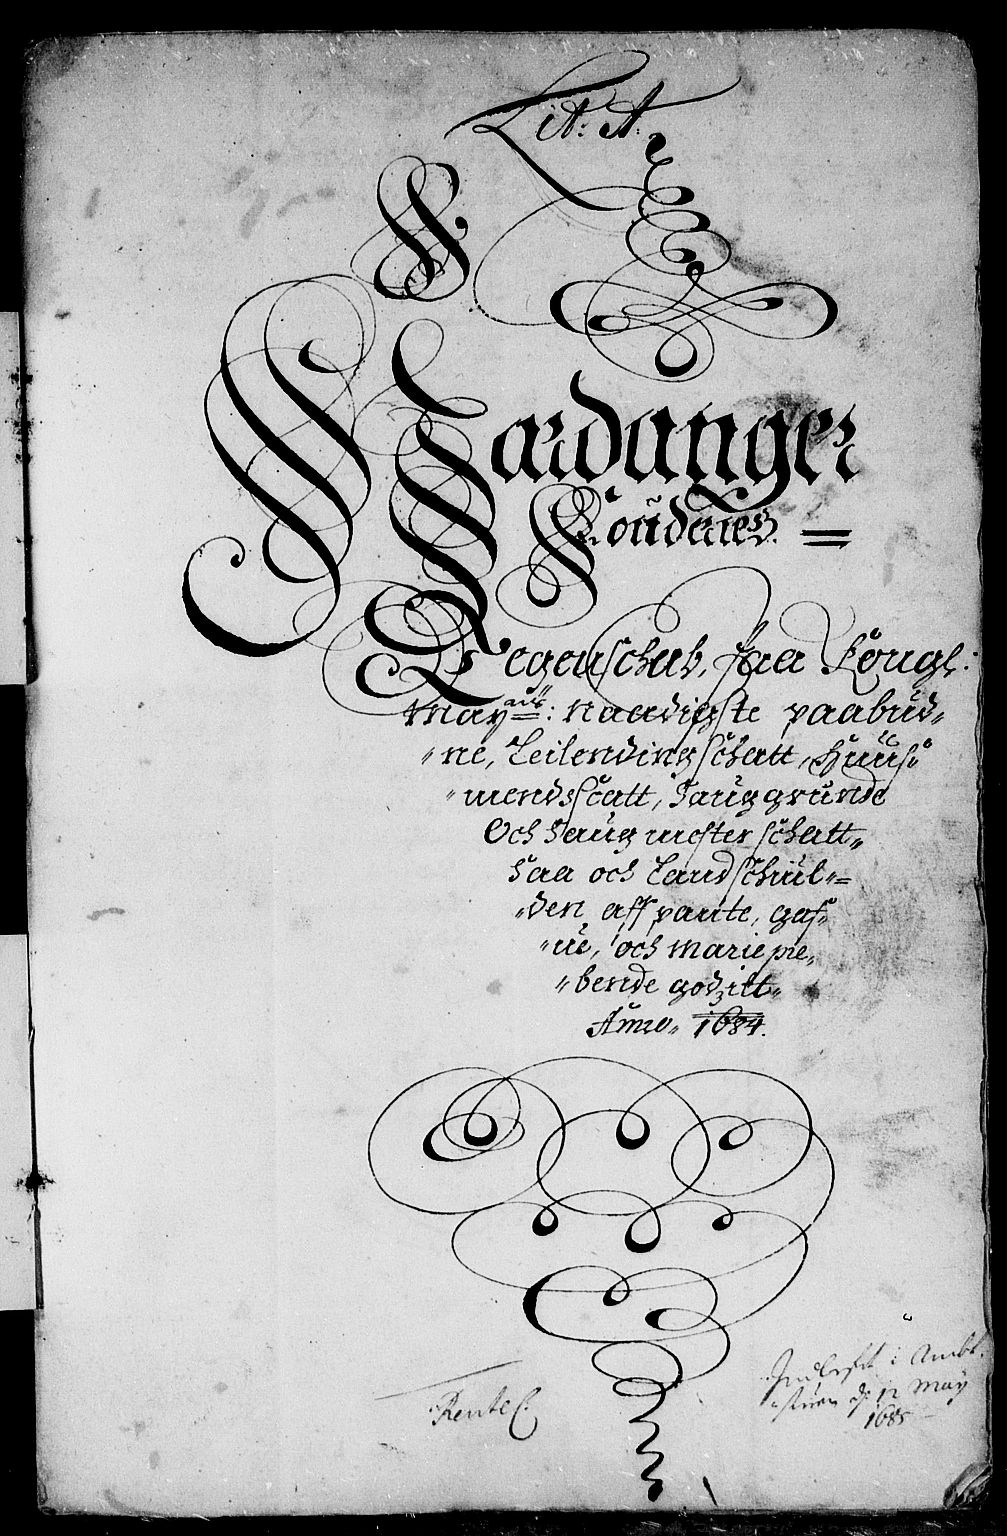 Lit: A:
Hardanger
Regenschab, paa Kongl:
Mayts: Naadigste paabud„
„ne, Leilendingschatt, Huus„
„mendsSchatt, Saug grunde
Och Saug mester schatt„
Saa och Landschùl„=
„den aff pante, gaf„
„ue, och Mariæ præ„
„bende godz itt„
Anno„ 1684.
RenteC.
Indlefft i Ambt„
„stuen d: 12 May
1685